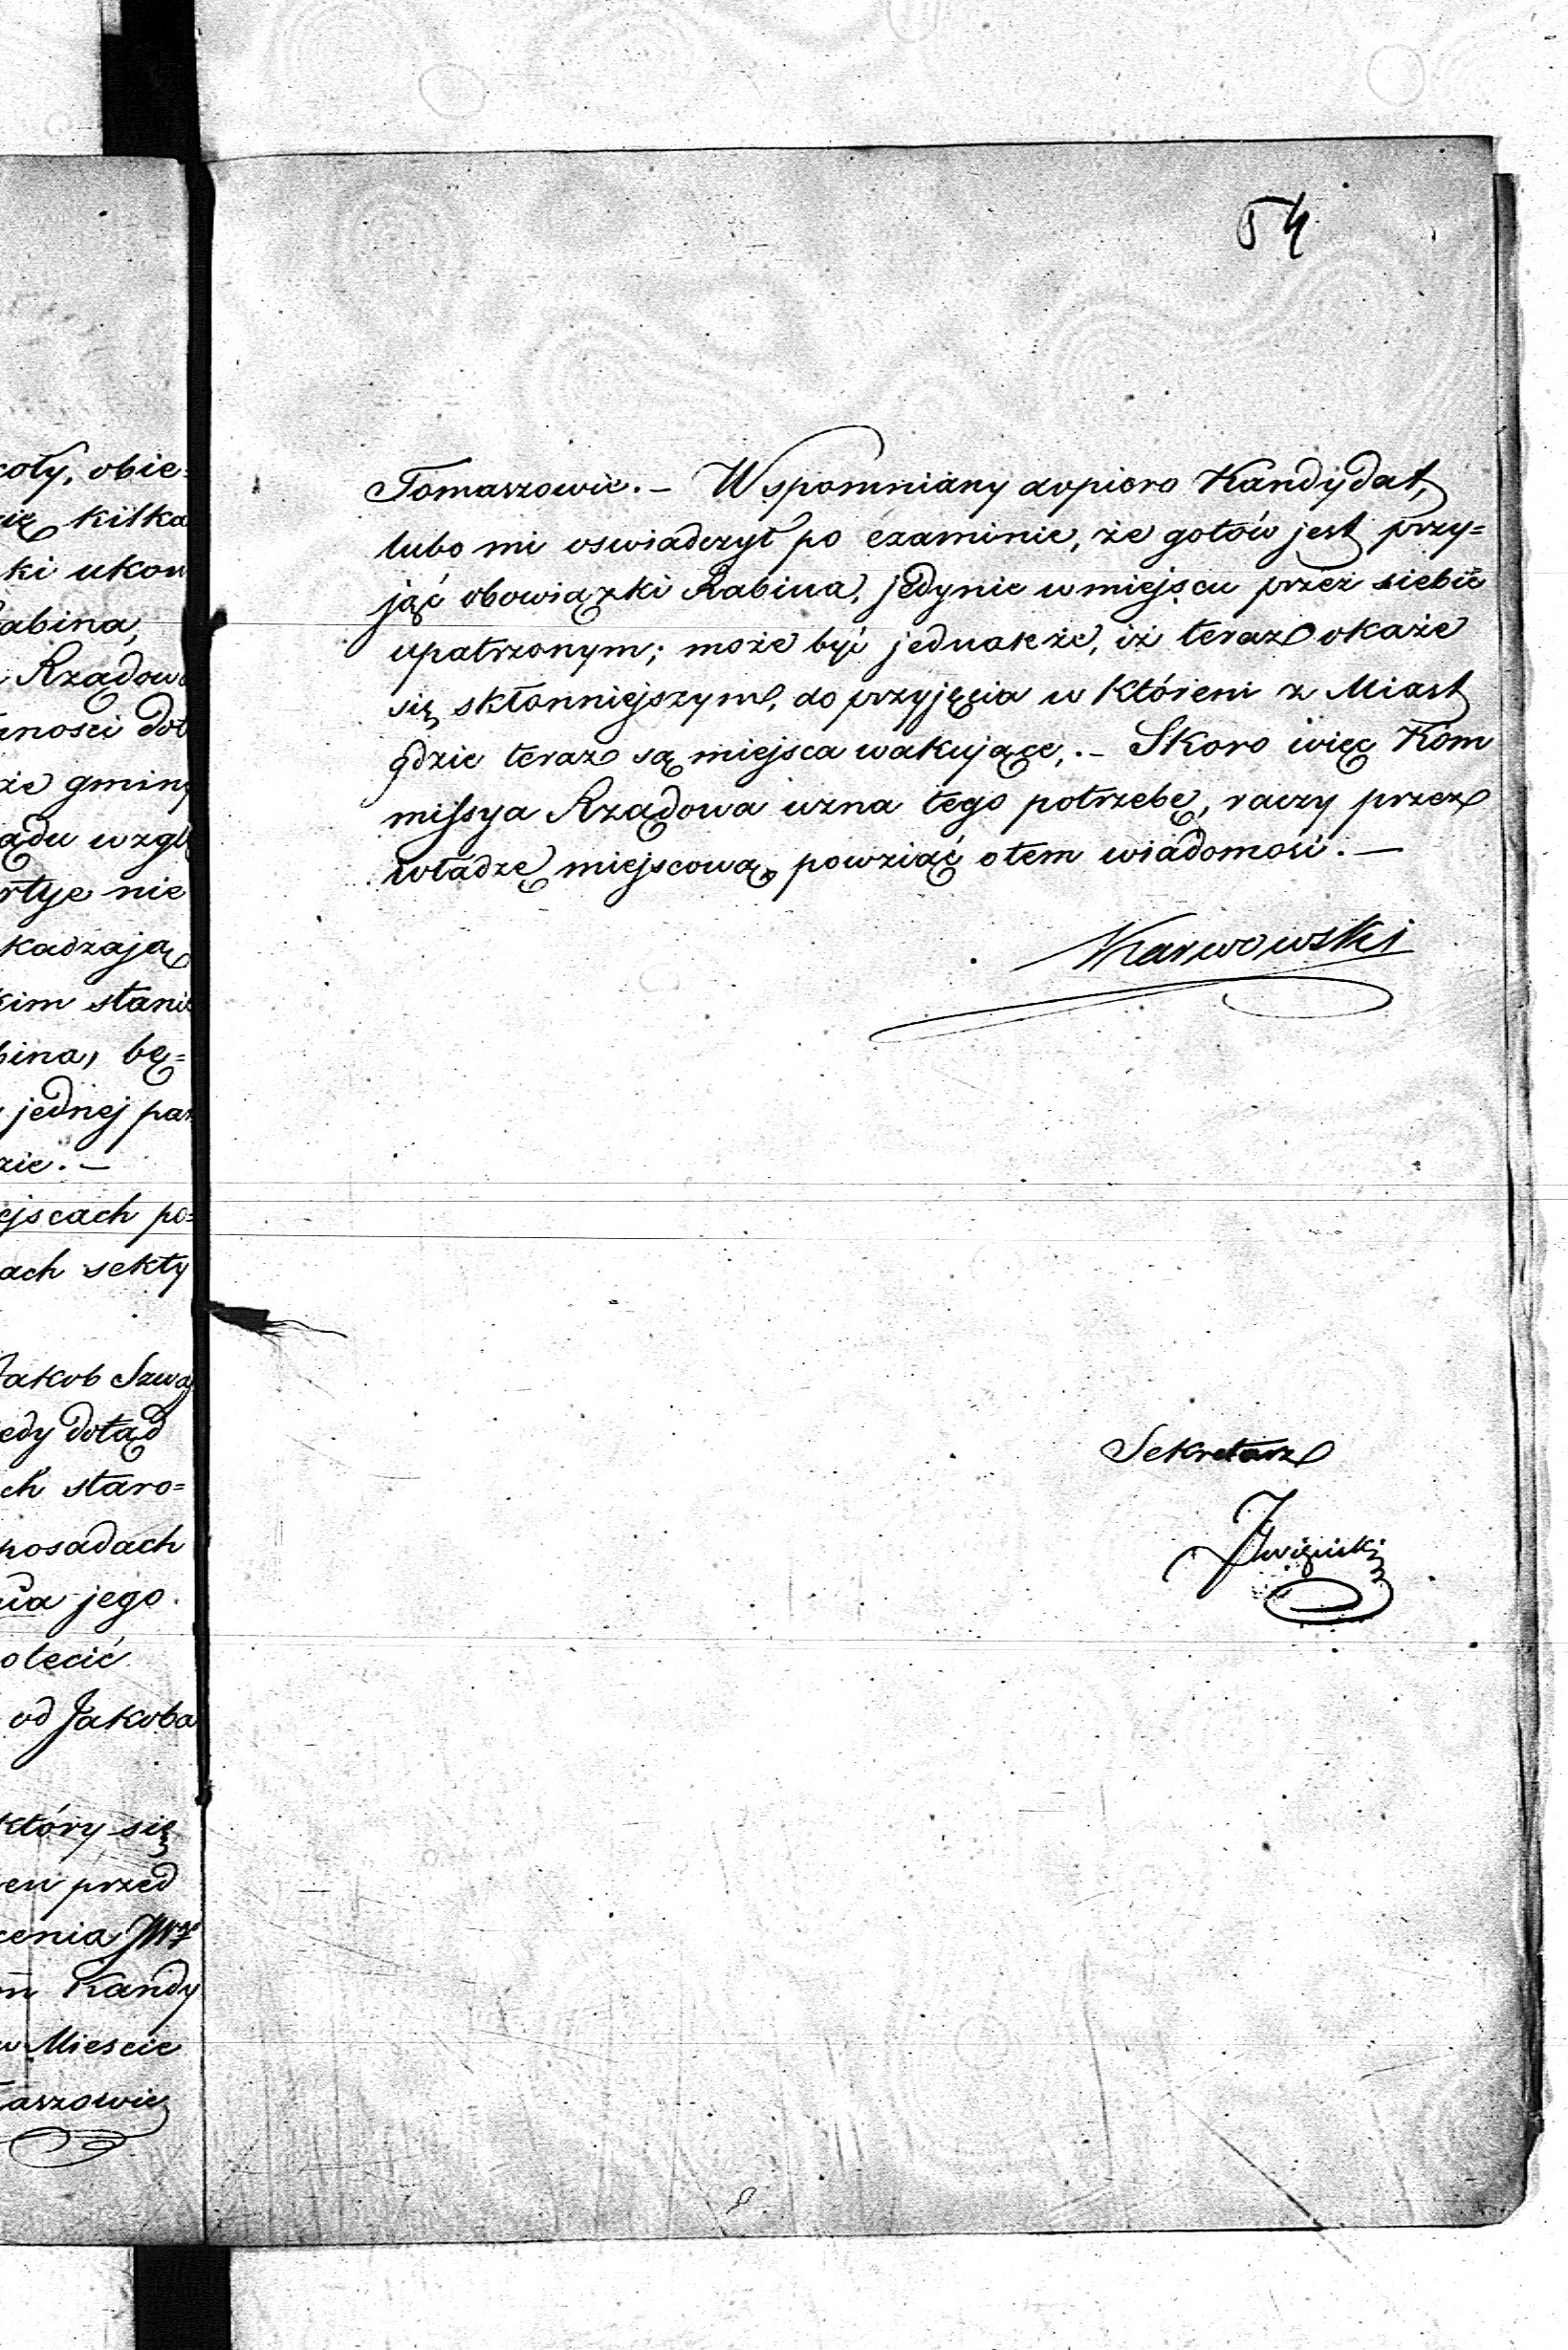 54
Tomaszowie. — Wspomniany dopiero Kandydat,
lubo mi oswiadczył po examinie, że gotów jest przy=
jąć obowiązki Rabina, jedynie w miejscu przez siebie
upatrzonym; może być jednakże, iż teraz okaże
się skłonniejszym, do przyjęcia w którem z Miast
gdzie teraz są miejsca wakujące. — Skoro więc Kom
missya Rządowa uzna tego potrzebę, raczy przez
władzę miejscową, powziąć o tem wiadomość. —
Karwowski
Sekretarz
oły, obie=
się kilka
ki ukoń
Rabina,
Rządow
ności dot
że gminy
ądu wzglę
rtye nie
kadzają
kim stanie
bina, bę=
jednej par
zie. —
ejscach po=
ach sekty
Jakob Szwa
edy dotąd
ch staro=
posadach
nia jego.
olecić
od Jakoba
który się
en przed
cenia
m Kandy
w Miescie
aszowie